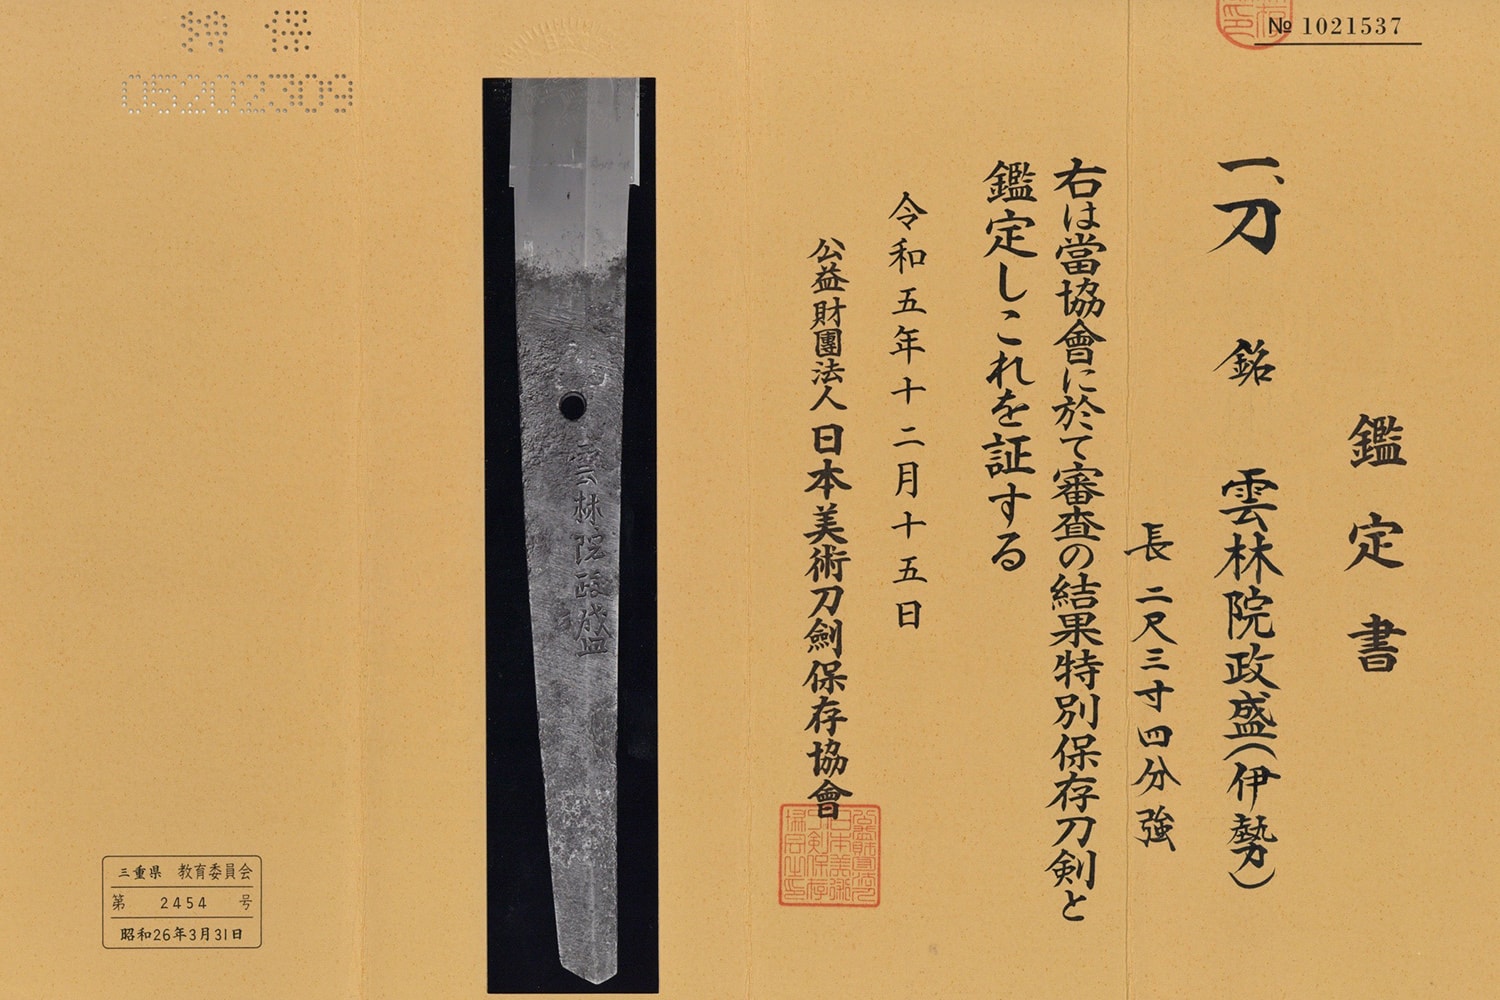 № 1021537
鑑定書
一、刀 銘 雲林院政盛(伊勢)
長 二尺三寸四分強
右は當協會に於て審査の結果特別保存刀剣と
鑑定しこれを証する
令和五年十二月十五日
公益財團法人 日本美術刀劍保存協會
雲林院政盛
特保
05202309
三重県 教育委員会
第 2454 号
昭和26年3月31日